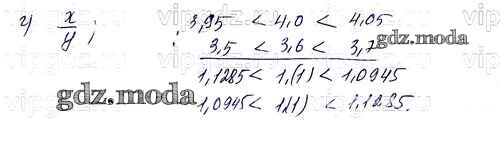 г) x/y; : 3,95 < 4,0 < 4,05
3,5 < 3,6 < 3,7
1,1285 < 1,(1) < 1,0945
1,0945 < 1,(1) < 1,1285.
gdz.moda
gdz.moda